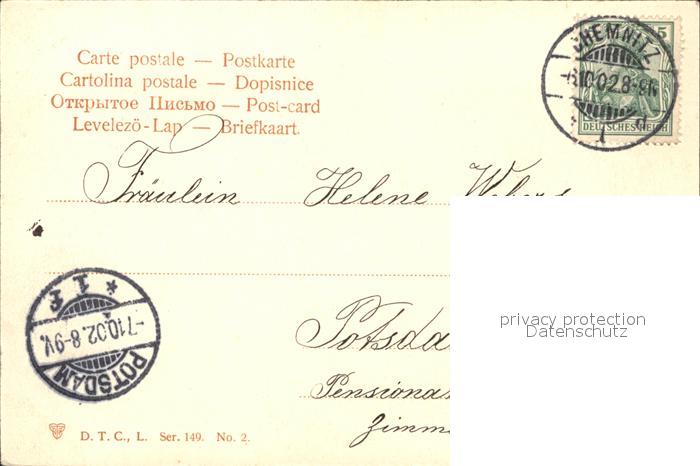 Carte postale — Postkarte
Cartolina postale — Dopisnice
Открытое Письмо — Post-card
Levelező-Lap — Briefkaart.
CHEMNITZ
-6.10.02.8-9N.
1 d
5
DEUTSCHES REICH
Fräulein Helene
Potsda
Pensiona
Zimm
POTSDAM
-7.10.02.8-9V.
* 1 f
privacy protection
Datenschutz
D. T. C., L. Ser. 149. No. 2.